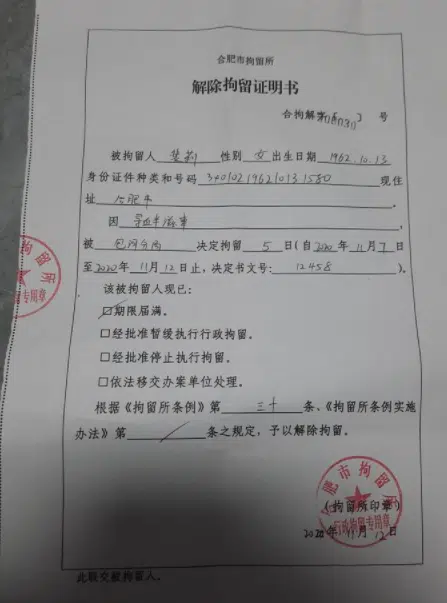 合肥市拘留所
解除拘留证明书
合拘解字〔 〕 号
被拘留人 性别 女 出生日期 1962.10.13
身份证件种类和号码 340102196210131580 现住
址 合肥市
因 寻衅滋事
被 包河分局 决定拘留 5 日(自2020年11月7日
至2020年11月12日止,决定书文号: 12458 )。
该被拘留人现已:
☑期限届满。
□经批准暂缓执行行政拘留。
□经批准停止执行拘留。
□依法移交办案单位处理。
根据《拘留所条例》第 三十 条、《拘留所条例实施
办法》第 / 条之规定,予以解除拘留。
(拘留所印章)
2020年11月12日
合肥市拘留所
行政拘留专用章
拘留所
专用章
此联交被拘留人。